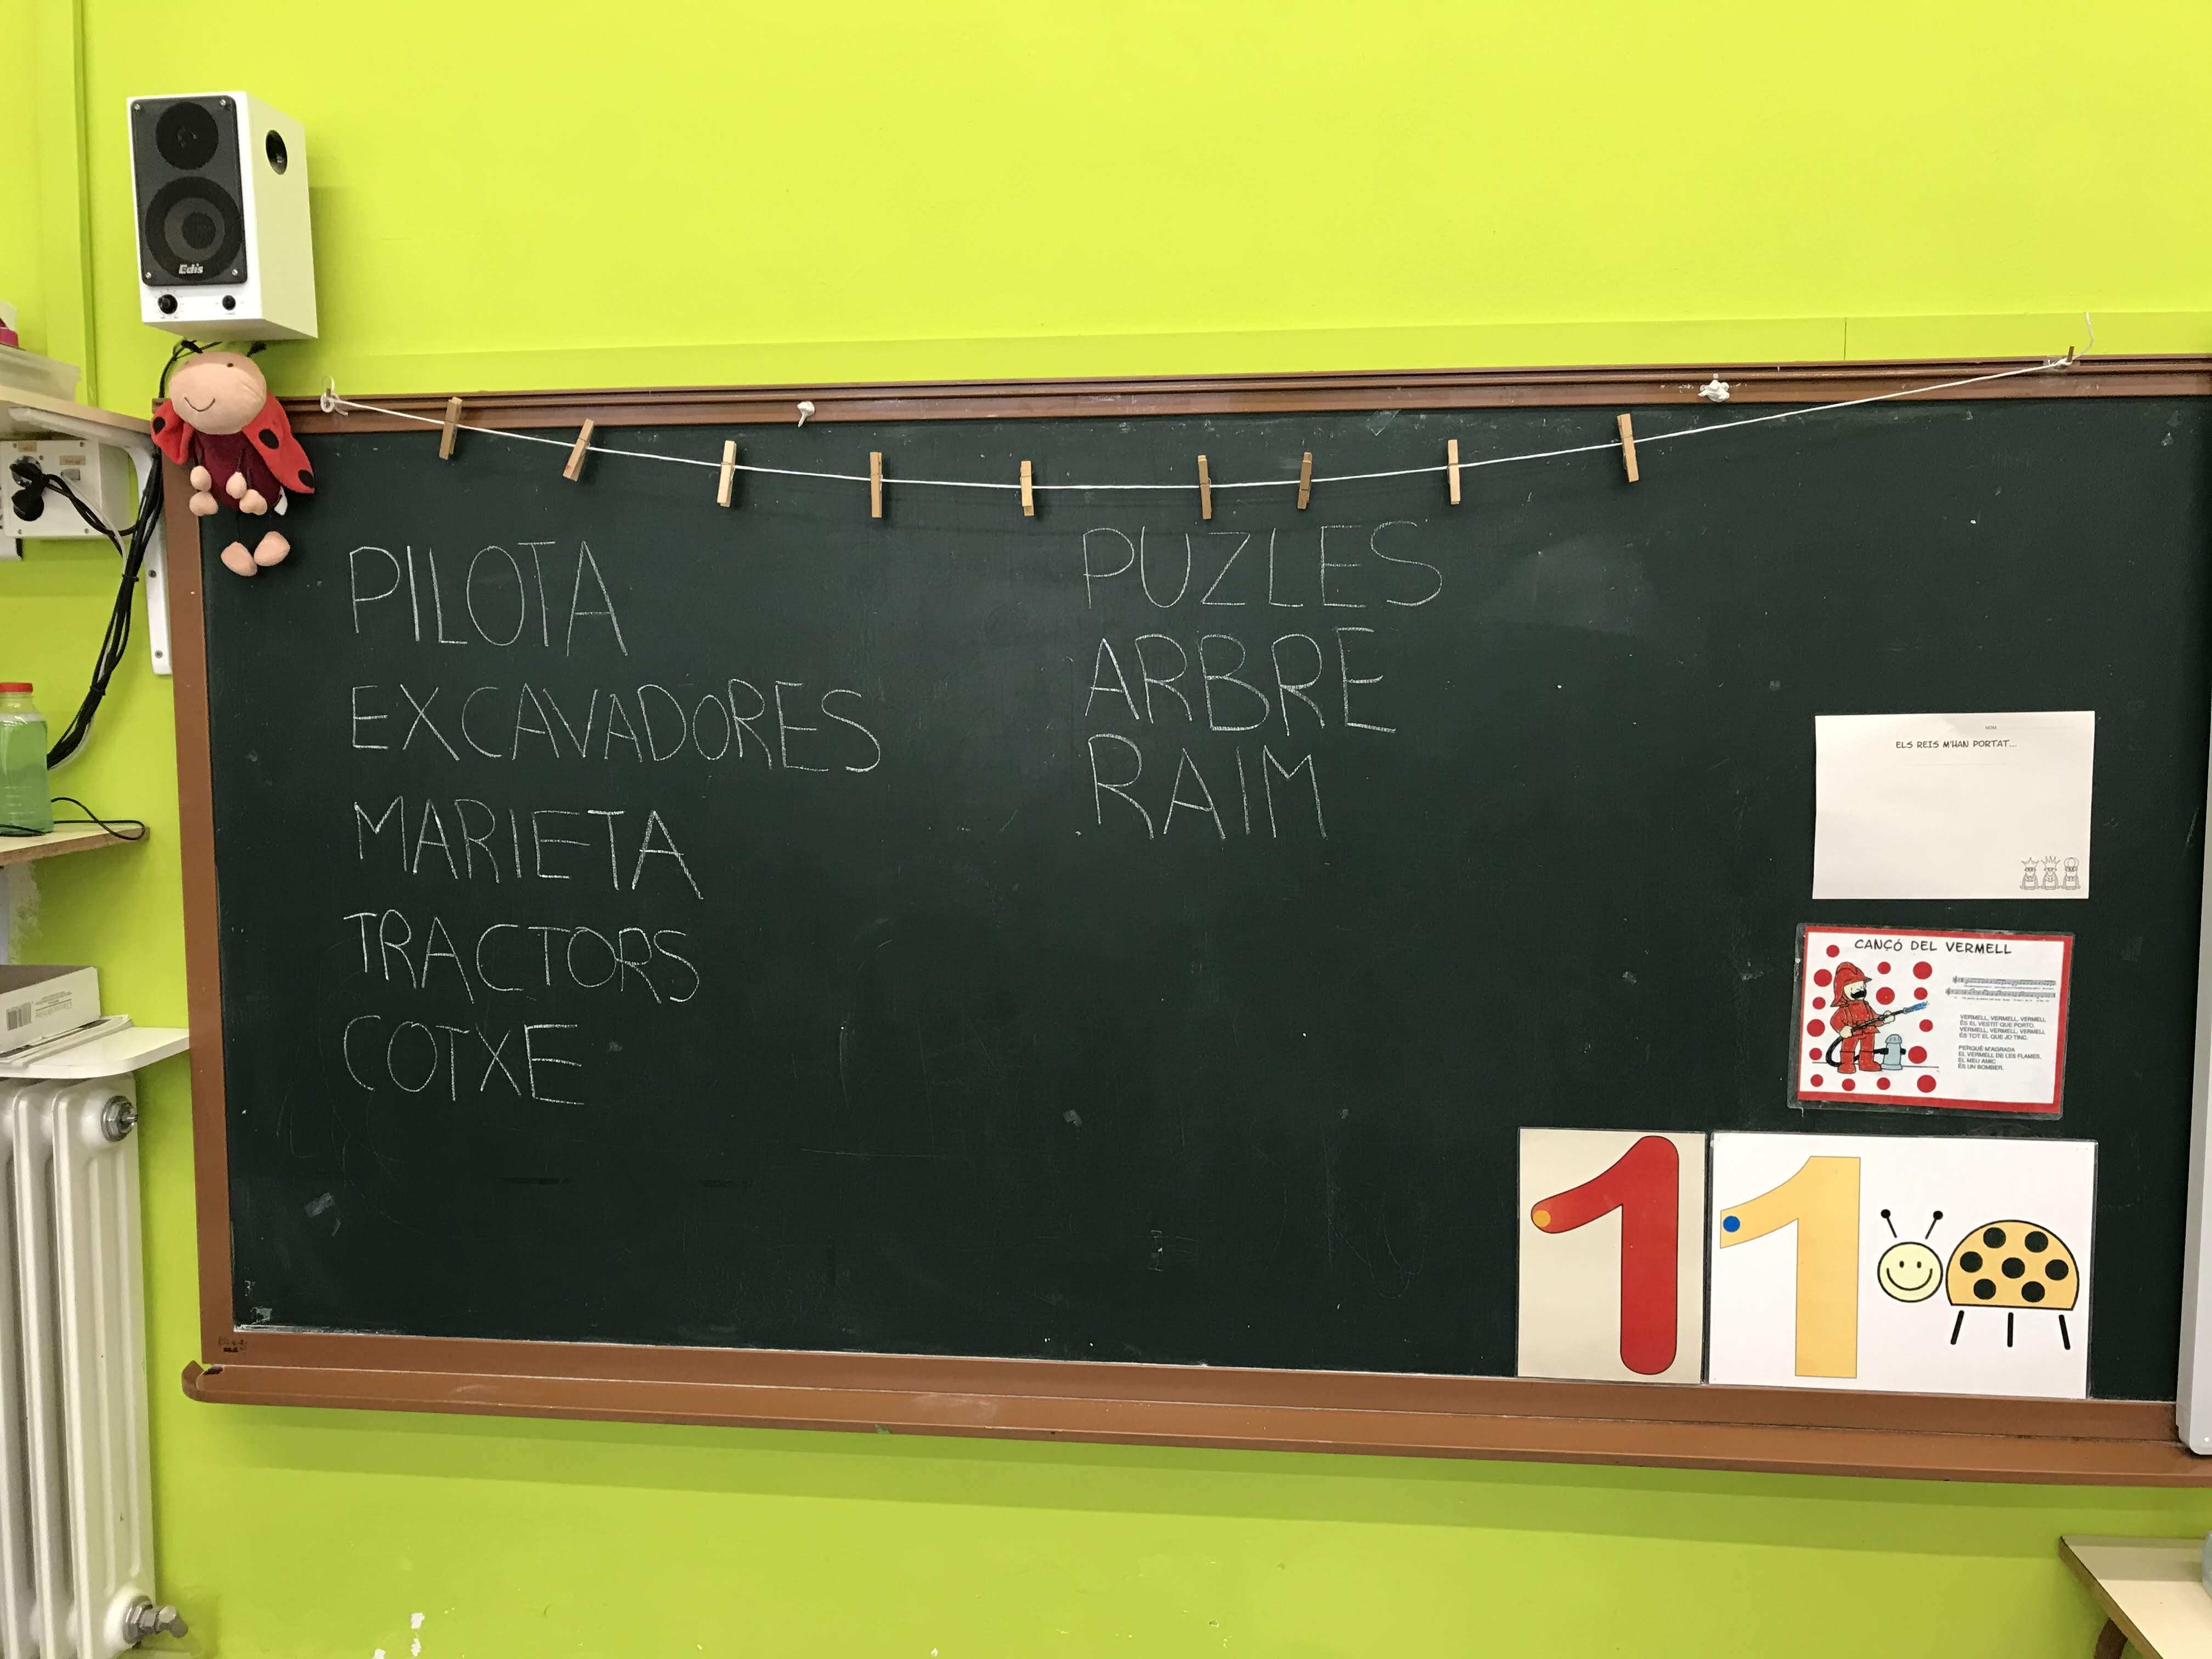 Edis
PILOTA
EXCAVADORES
MARIETA
TRACTORS
COTXE
PUZLES
ARBRE
RAIM
NOM
ELS REIS M'HAN PORTAT...
CANÇÓ DEL VERMELL
VERMELL, VERMELL, VERMELL
ÉS EL VESTIT QUE PORTO.
VERMELL, VERMELL, VERMELL
ÉS TOT EL QUE JO TINC.
PERQUÈ M'AGRADA
EL VERMELL DE LES FLAMES,
EL MEU AMIC
ÉS UN BOMBER.
1
1